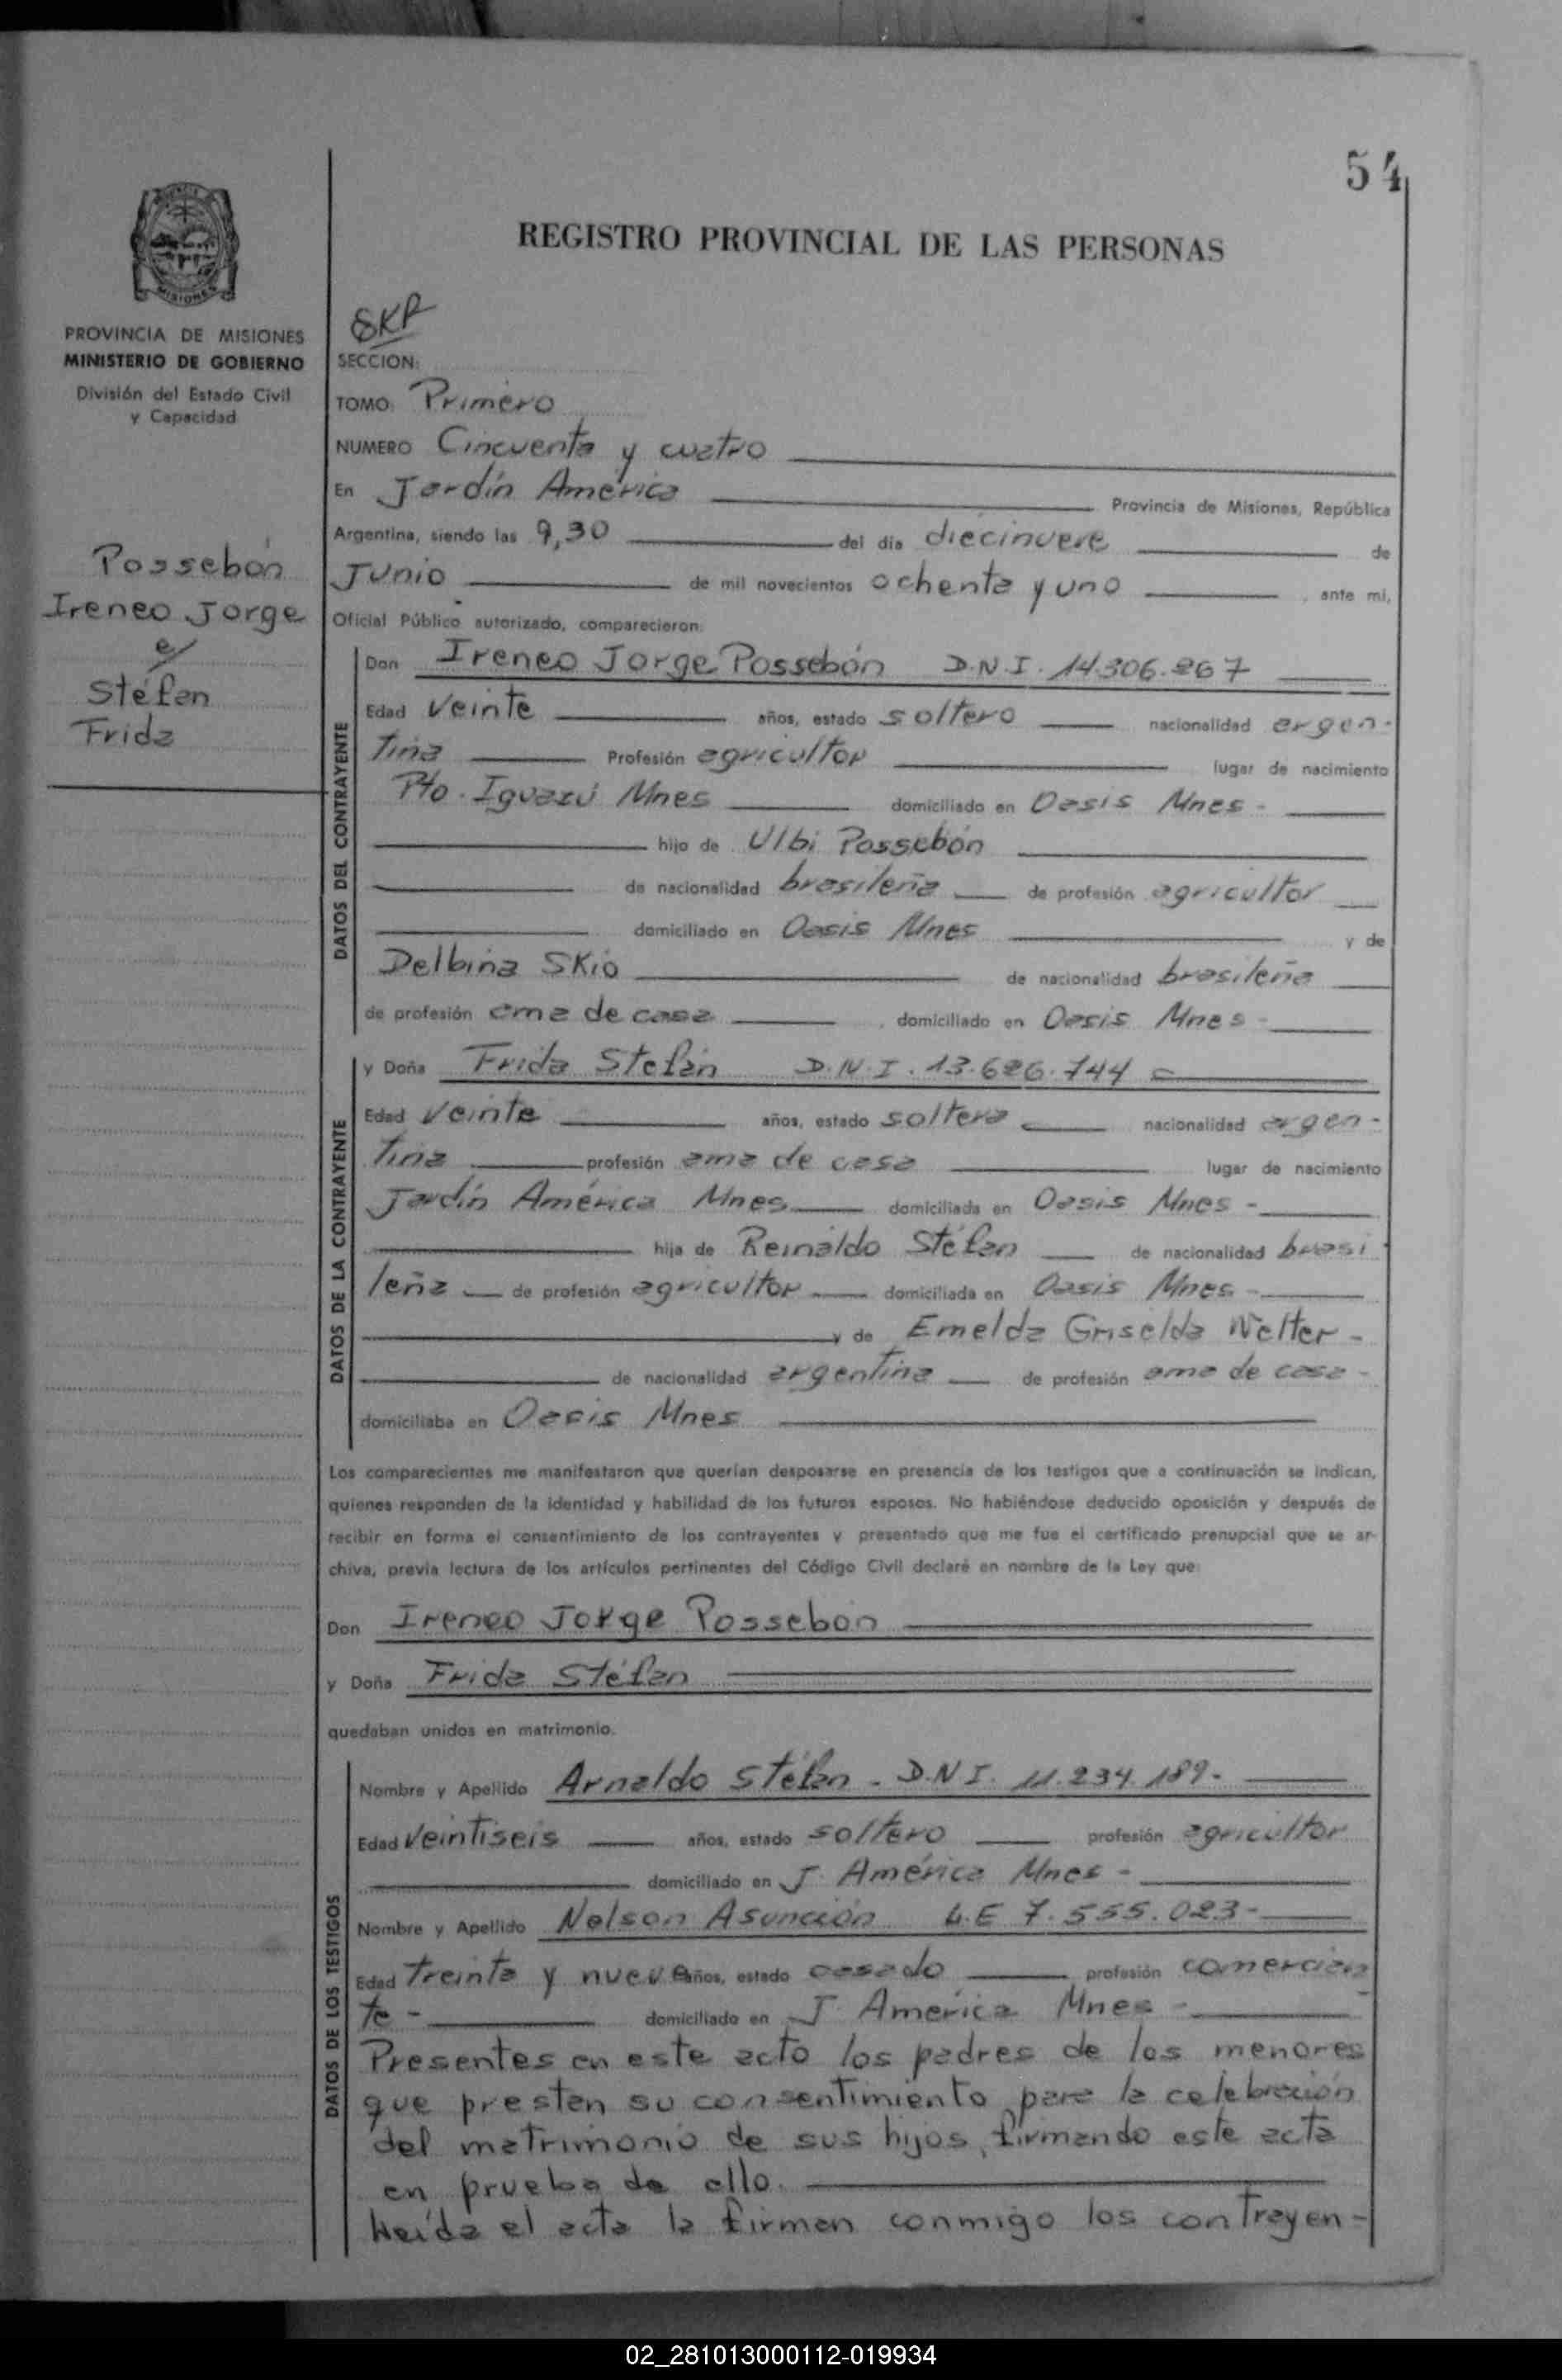 54
REGISTRO PROVINCIAL DE LAS PERSONAS
MISIONES
PROVINCIA DE MISIONES
MINISTERIO DE GOBIERNO
División del Estado Civil
y Capacidad
Possebón
Ireneo Jorge
c/
Stéfan
Frida
SECCION:
TOMO: Primero
NUMERO Cincuenta y cuatro
En Jardín América Provincia de Misiones, República
Argentina, siendo las 9,30 del día diecinueve de
Junio de mil novecientos ochenta y uno ante mi,
Oficial Público autorizado, comparecieron:
DATOS DEL CONTRAYENTE
Don Ireneo Jorge Possebón D.N.I. 14.306.267
Edad veinte años, estado soltero nacionalidad argen-
tina Profesión agricultor lugar de nacimiento
Pto. Iguazú Mnes domiciliado en Oasis Mnes -
hijo de Ulbi Possebón
de nacionalidad brasileña de profesión agricultor
domiciliado en Oasis Mnes y de
Delbina Skio de nacionalidad brasileña
de profesión ama de casa , domiciliado en Oasis Mnes -
DATOS DE LA CONTRAYENTE
y Doña Frida Stefán D.N.I. 13.626.744
Edad veinte años, estado soltera nacionalidad argen-
tina profesión ama de casa lugar de nacimiento
Jardín América Mnes domiciliada en Oasis Mnes -
hija de Reinaldo Stéfan de nacionalidad brasi
leña de profesión agricultor domiciliada en Oasis Mnes -
y de Emelda Griselda Welter -
de nacionalidad argentina de profesión ama de casa -
domiciliaba en Oasis Mnes
Los comparecientes me manifestaron que querían desposarse en presencia de los testigos que a continuación se indican,
quienes responden de la identidad y habilidad de los futuros esposos. No habiéndose deducido oposición y después de
recibir en forma el consentimiento de los contrayentes y presentado que me fue el certificado prenupcial que se ar-
chiva, previa lectura de los artículos pertinentes del Código Civil declaré en nombre de la Ley que:
Don Ireneo Jorge Possebón
y Doña Frida Stéfan
quedaban unidos en matrimonio.
DATOS DE LOS TESTIGOS
Nombre y Apellido Arnaldo Stéfan - D.N.I. 11.234.189 -
Edad veintiseis años, estado soltero profesión agricultor
domiciliado en J. América Mnes -
Nombre y Apellido Nelson Asunción L.E 7.555.023 -
Edad treinta y nueve años, estado casado profesión comercian
te - domiciliado en J. América Mnes -
Presentes en este acto los padres de los menores
que prestan su consentimiento para la celebración
del matrimonio de sus hijos, firmando este acta
en prueba de ello.
Leída el acta la firman conmigo los contrayen-
02_281013000112-019934